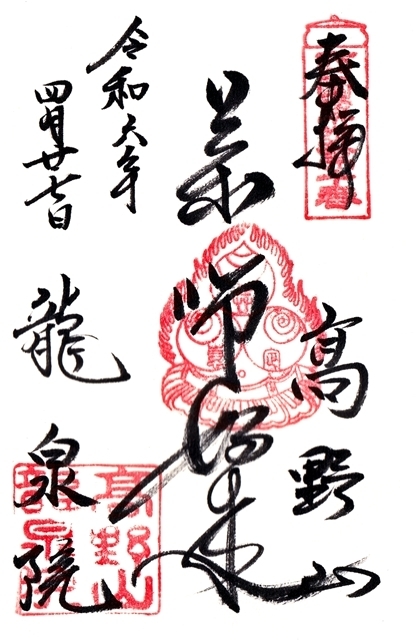 奉拝
高野山
薬師如来
令和六年
四月廿七日
龍泉院
高野山
龍泉院